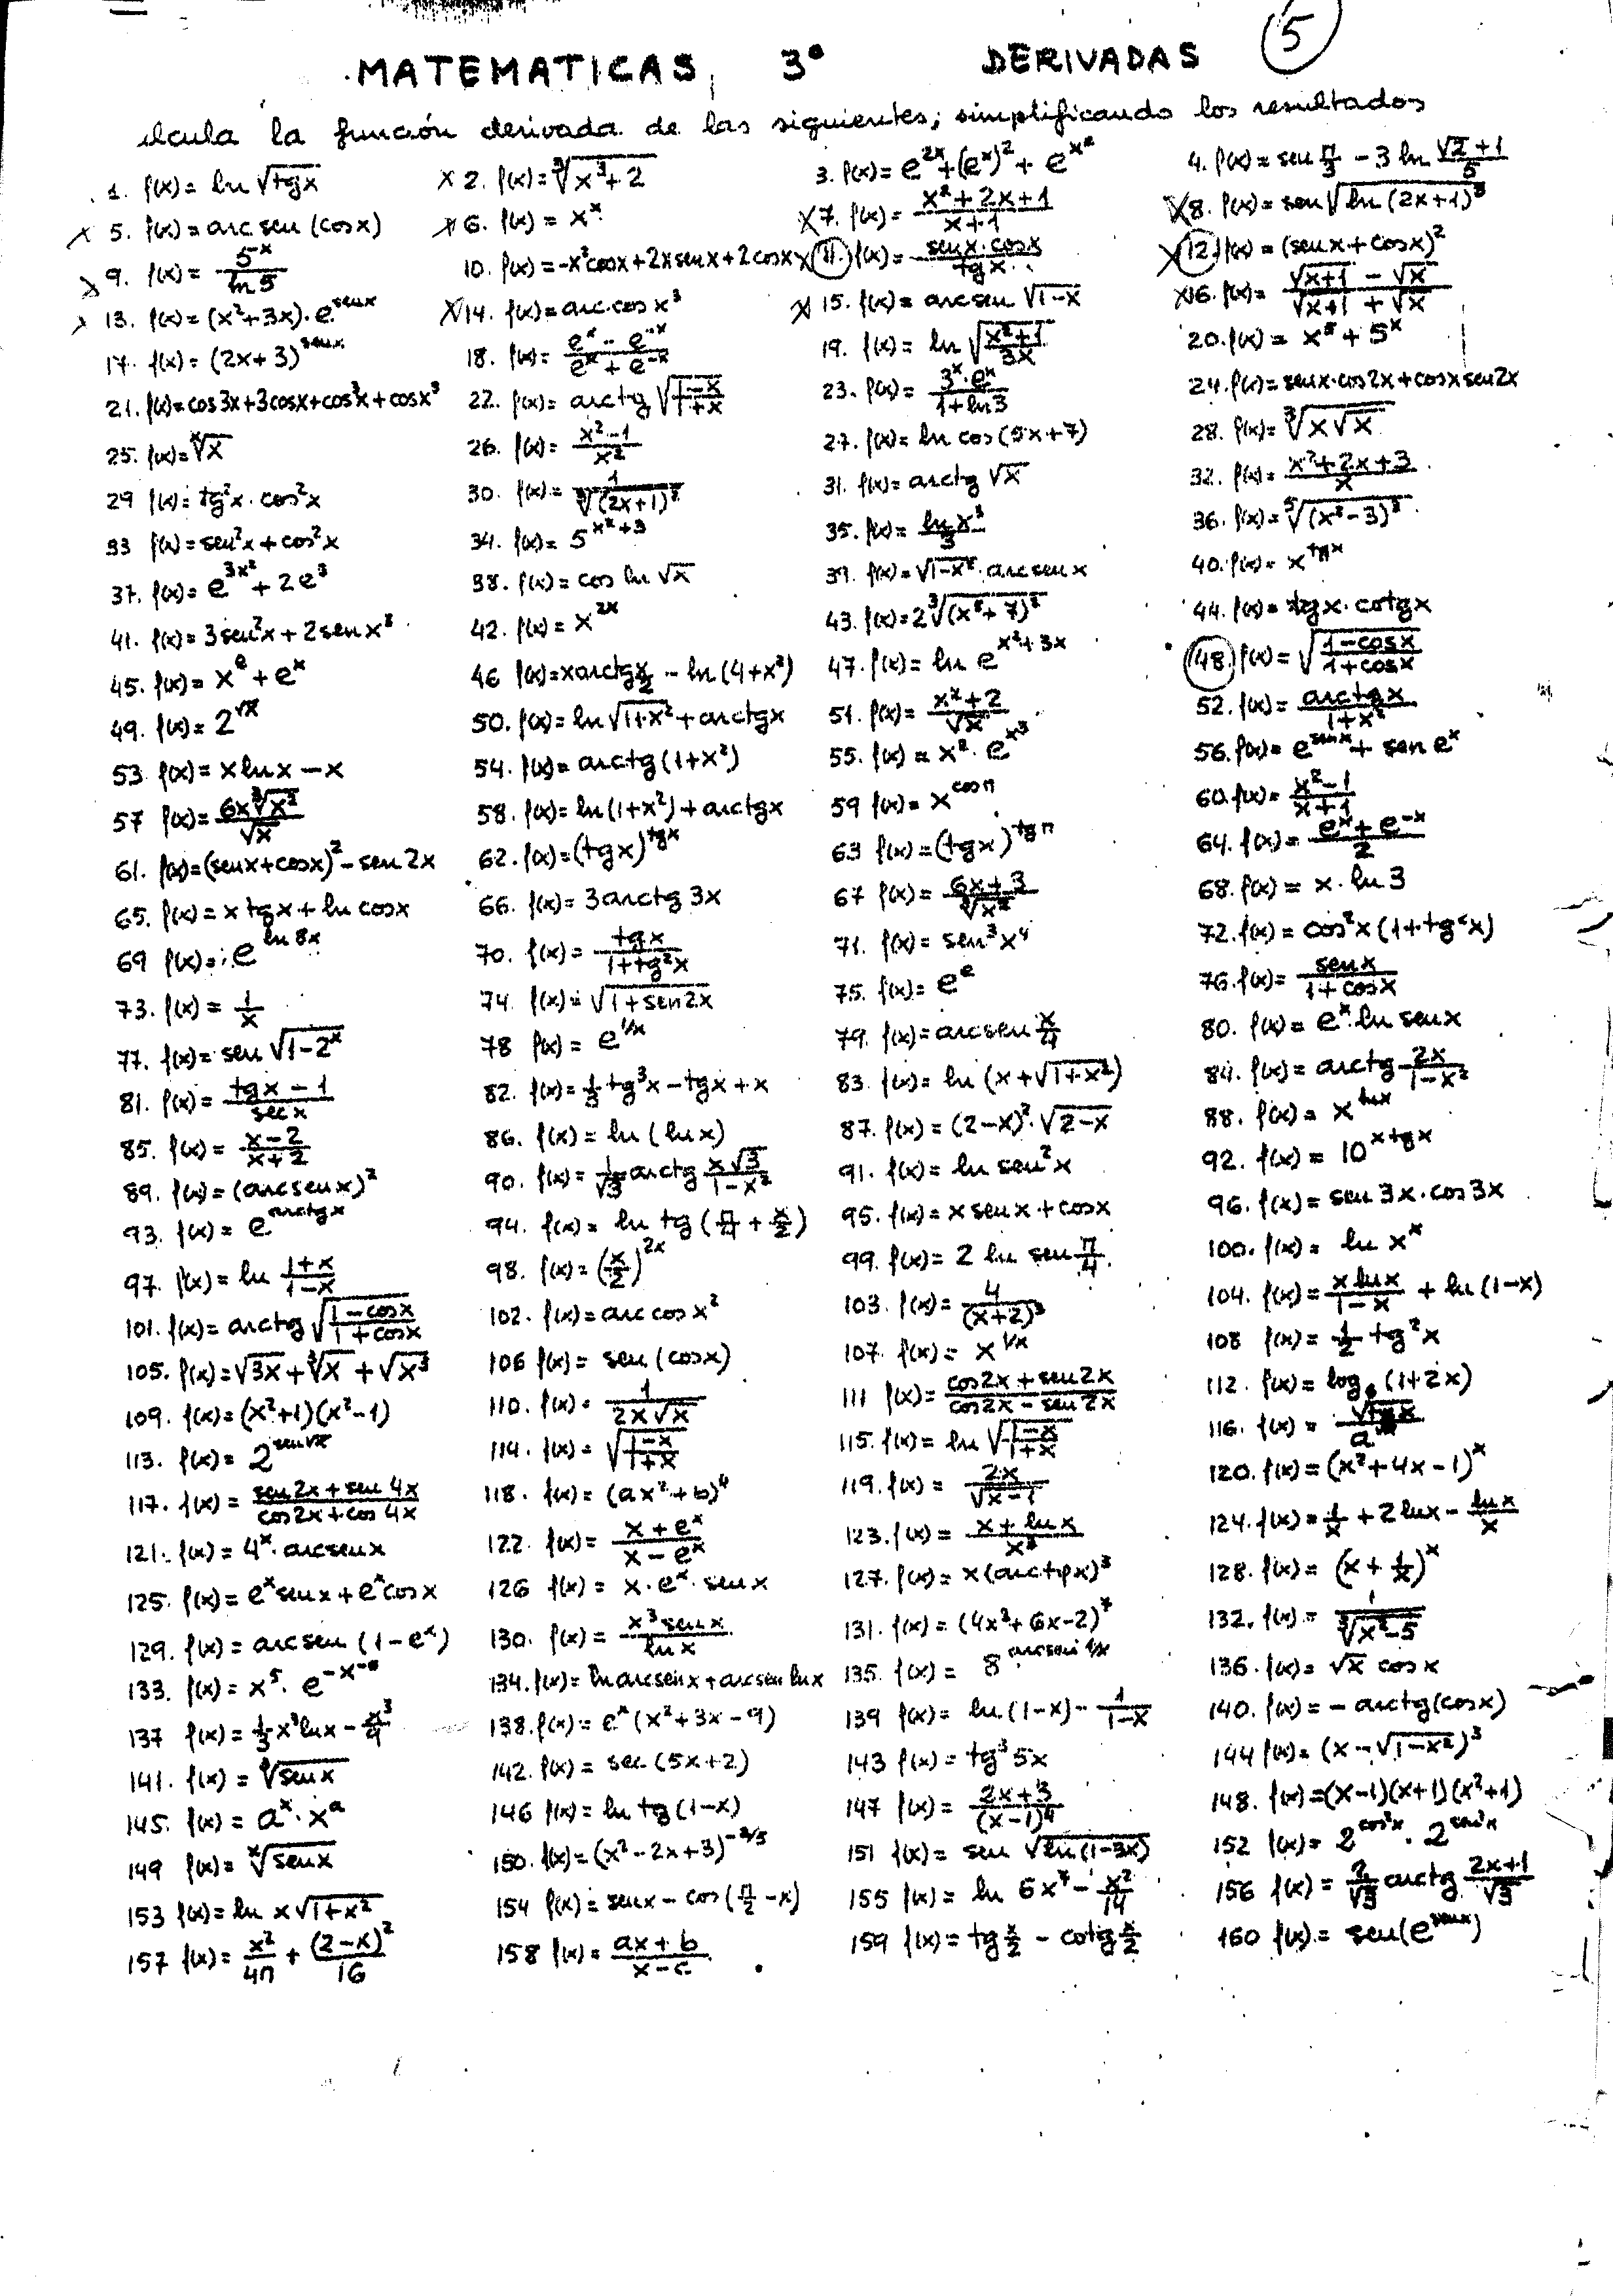 MATEMATICAS, 3º DERIVADAS 5
lcula la función derivada de las siguientes, simplificando los resultados
1. f(x) = ln √tgx  x 2. f(x) = ∛(x³+2)  3. f(x) = e^2x + (e^x)² + e^x²  4. f(x) = sen π/3 - 3 ln (√2+1)/5
x 5. f(x) = arc sen (cosx)  x 6. f(x) = x^x  x 7. f(x) = (x²+2x+1)/(x+1)  x 8. f(x) = sen √(ln (2x+1)³)
x 9. f(x) = 5^x/ln 5  10. f(x) = -x²cosx + 2x senx + 2cosx  x 11. f(x) = (senx·cosx)/tgx  x 12. f(x) = (senx + cosx)²
x 13. f(x) = (x²+3x)·e^senx  x 14. f(x) = arc cos x³  x 15. f(x) = arc sen √(1-x)  x 16. f(x) = (√(x+1) - √x)/(√(x+1) + √x)
17. f(x) = (2x+3)^senx  18. f(x) = (e^x - e^-x)/(e^x + e^-x)  19. f(x) = ln √((x²+1)/3x)  20. f(x) = x^5 + 5^x
21. f(x) = cos3x + 3cosx + cos³x + cosx³  22. f(x) = arctg √((1-x)/(1+x))  23. f(x) = (3^x·e^x)/(1+ln3)  24. f(x) = senx·cos2x + cosx sen2x
25. f(x) = ˣ√x  26. f(x) = (x²-1)/x²  27. f(x) = ln cos(5x+7)  28. f(x) = ∛(x√x)
29 f(x) = tg²x·cos²x  30. f(x) = 1/∛(2x+1)²  31. f(x) = arctg √x  32. f(x) = (x²+2x+3)/x
33 f(x) = sen²x + cos²x  34. f(x) = 5^(x²+3)  35. f(x) = ln x³/3  36. f(x) = ⁵√(x²-3)³
37. f(x) = e^3x² + 2e³  38. f(x) = cos ln √x  39. f(x) = √(1-x²)·arc sen x  40. f(x) = x^tgx
41. f(x) = 3sen²x + 2senx³  42. f(x) = x^2x  43. f(x) = 2∛(x²+7)²  44. f(x) = tgx·cotgx
45. f(x) = x^e + e^x  46 f(x) = x arctg x/2 - ln(4+x²)  47. f(x) = ln e^(x²+3x)  48. f(x) = √((1-cosx)/(1+cosx))
49. f(x) = 2^√x  50. f(x) = ln √(1+x²) + arctgx  51. f(x) = (x²+2)/√x  52. f(x) = arctgx/(1+x²)
53 f(x) = x lnx - x  54. f(x) = arctg(1+x²)  55. f(x) = x²·e^x³  56. f(x) = e^senx + sen e^x
57 f(x) = 6x∛x²/√x  58. f(x) = ln(1+x²) + arctgx  59 f(x) = x^cosπ  60. f(x) = (x²-1)/(x+1)
61. f(x) = (senx+cosx)² - sen 2x  62. f(x) = (tgx)^tgx  63 f(x) = (tgx)^tgπ  64. f(x) = (e^x + e^-x)/2
65. f(x) = x tgx + ln cosx  66. f(x) = 3arctg 3x  67 f(x) = (6x+3)/∛x²  68. f(x) = x·ln 3
69 f(x) = e^ln 8x  70. f(x) = tgx/(1+tg²x)  71. f(x) = sen³x⁴  72. f(x) = cos²x(1+tg²x)
73. f(x) = 1/x  74. f(x) = √(1+sen2x)  75. f(x) = e^e  76. f(x) = senx/(1+cosx)
77. f(x) = sen √(1-2^x)  78 f(x) = e^1/x  79. f(x) = arcsen x/4  80. f(x) = e^x·ln senx
81. f(x) = (tgx - 1)/secx  82. f(x) = 1/3 tg³x - tgx + x  83. f(x) = ln (x+√(1+x²))  84. f(x) = arctg 2x/(1-x²)
85. f(x) = (x-2)/(x+2)  86. f(x) = ln (lnx)  87. f(x) = (2-x)²·√(2-x)  88. f(x) = x^lnx
89. f(x) = (arcsenx)²  90. f(x) = 1/√3 arctg x√3/(1-x²)  91. f(x) = ln sen²x  92. f(x) = 10^(x tgx)
93. f(x) = e^arctgx  94. f(x) = ln tg (π/4 + x/2)  95. f(x) = x senx + cosx  96. f(x) = sen 3x·cos 3x
97. f(x) = ln (1+x)/(1-x)  98. f(x) = (x/2)^2x  99. f(x) = 2 ln sen π/4  100. f(x) = ln x^x
101. f(x) = arctg √((1-cosx)/(1+cosx))  102. f(x) = arc cos x²  103. f(x) = 4/(x+2)³  104. f(x) = x lnx/(1-x) + ln (1-x)
105. f(x) = √3x + ∛x + √x³  106 f(x) = sen (cosx)  107. f(x) = x^1/x  108 f(x) = 1/2 tg²x
109. f(x) = (x²+1)(x²-1)  110. f(x) = 1/(2x√x)  111 f(x) = (cos2x + sen2x)/(cos2x - sen2x)  112. f(x) = log (1+2x)
113. f(x) = 2^sen√x  114. f(x) = √((1-x)/(1+x))  115. f(x) = ln √((1-x)/(1+x))  116. f(x) =
117. f(x) = (sen2x + sen 4x)/(cos2x + cos 4x)  118. f(x) = (ax²+b)⁴  119. f(x) = 2x/√(x-1)  120. f(x) = (x²+4x-1)^x
121. f(x) = 4^x·arcsenx  122. f(x) = (x+e^x)/(x-e^x)  123. f(x) = (x+lnx)/x²  124. f(x) = 1/x + 2 lnx - lnx/x
125. f(x) = e^x senx + e^x cosx  126 f(x) = x·e^x·senx  127. f(x) = x(arctgx)³  128. f(x) = (x + 1/x)^x
129. f(x) = arcsen (1-e^x)  130. f(x) = x³senx/lnx  131. f(x) = (4x²+6x-2)⁷  132. f(x) = 1/∛(x²-5)
133. f(x) = x⁵·  134. f(x) = ln arcsenx + arcsen lnx  135. f(x) = 8^arcsen 1/x  136. f(x) = √x cosx
137 f(x) = 1/3 x³lnx - x³/9  138. f(x) = e^x(x²+3x-9)  139 f(x) = ln (1-x) - 1/(1-x)  140. f(x) = - arctg(cosx)
141. f(x) = √senx  142. f(x) = sec (5x+2)  143 f(x) = tg³5x  144 f(x) = (x-√(1-x²))³
145. f(x) = a^x·x^a  146 f(x) = ln tg(1-x)  147 f(x) = (2x+3)/(x-1)⁴  148. f(x) = (x-1)(x+1)(x²+1)
149 f(x) = ˣ√senx  150. f(x) = (x²-2x+3)^-2/5  151 f(x) = sen √ln(1-3x)  152 f(x) = 2^cos²x·2^sen²x
153 f(x) = ln x√(1+x²)  154 f(x) = senx - cos(π/2 - x)  155 f(x) = ln 6x⁷ - x²/14  156 f(x) = 2/√3 arctg (2x+1)/√3
157 f(x) = x²/4π + (2-x)²/16  158 f(x) = (ax+b)/(x-c)  159 f(x) = tg x/2 - cotg x/2  160 f(x) = sen(e^senx)